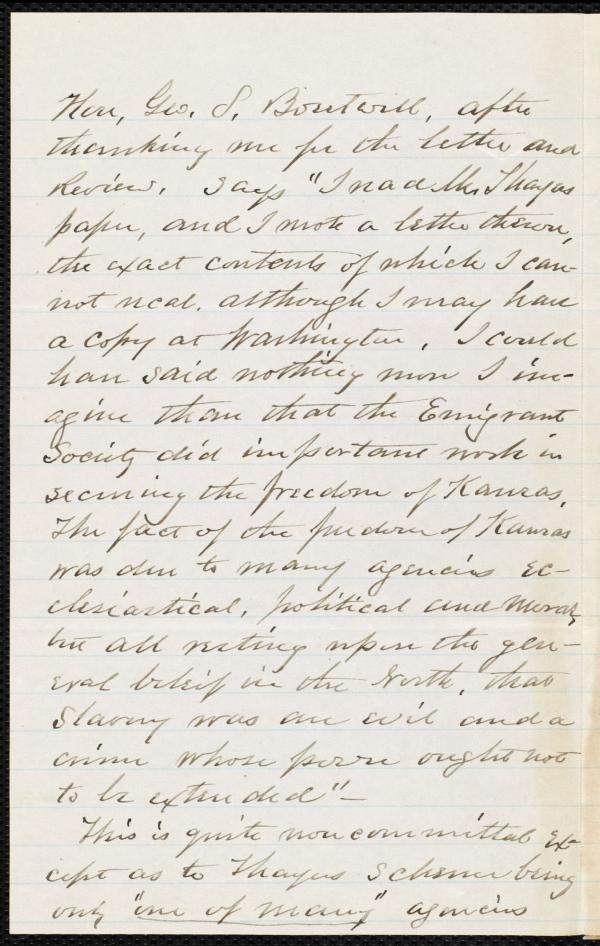 Hon, Geo. S. Boutwell, after
thanking me for the letter and
Review, says "I read Mr Thayers
paper, and I wrote a letter thereon,
the exact contents of which I can-
not recal. although I may have
a copy at Washington, I could
have said nothing more I im-
agine than that the Emigrant
Society did important work in
securing the freedom of Kansas,
The fact of the freedom of Kansas
was due to many agencies ec-
clesiastical, political and moral,
but all resting upon the gen-
eral beleif in the North, that
Slavery was an evil and a
crime whose power ought not
to be extended"—
This is quite noncommittal ex-
cept as to Thayers Scheme being
only "one of many" agencies